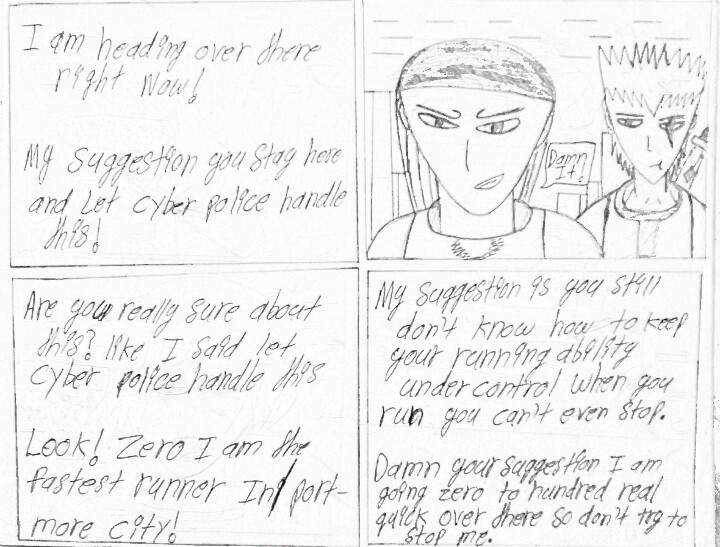 I am heading over there
right Now!
My suggestion you stay here
and let cyber police handle
this!
Damn
It!
Are you really sure about
this? like I said let
cyber police handle this
Look! Zero I am the
fastest runner In port-
more city!
My suggestion is you still
don't know how to keep
your running ability
under control when you
run you can't even stop.
Damn your suggestion I am
going zero to hundred real
quick over there so don't try to
stop me.